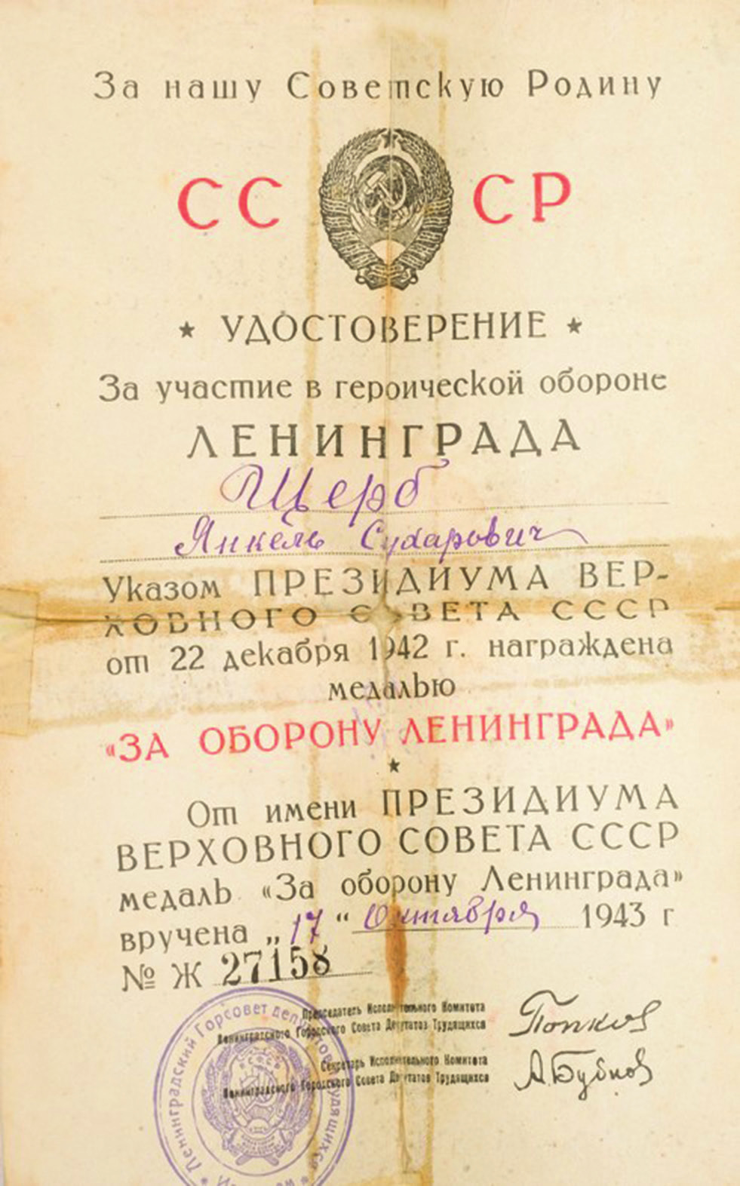 За нашу Советскую Родину
СССР
★ УДОСТОВЕРЕНИЕ ★
За участие в героической обороне
ЛЕНИНГРАДА
Щерб
Янкель Сухарович
Указом ПРЕЗИДИУМА ВЕР-
ХОВНОГО СОВЕТА СССР
от 22 декабря 1942 г. награждена
медалью
«ЗА ОБОРОНУ ЛЕНИНГРАДА»
★
От имени ПРЕЗИДИУМА
ВЕРХОВНОГО СОВЕТА СССР
медаль «За оборону Ленинграда»
вручена „17“ Октября 1943 г
№ Ж 27158
Председатель Исполнительного Комитета
Ленинградского Городского Совета Депутатов Трудящихся
Попков
Секретарь Исполнительного Комитета
Ленинградского Городского Совета Депутатов Трудящихся
АБубнов
Ленинградский Горсовет депутатов трудящихся
РСФСР